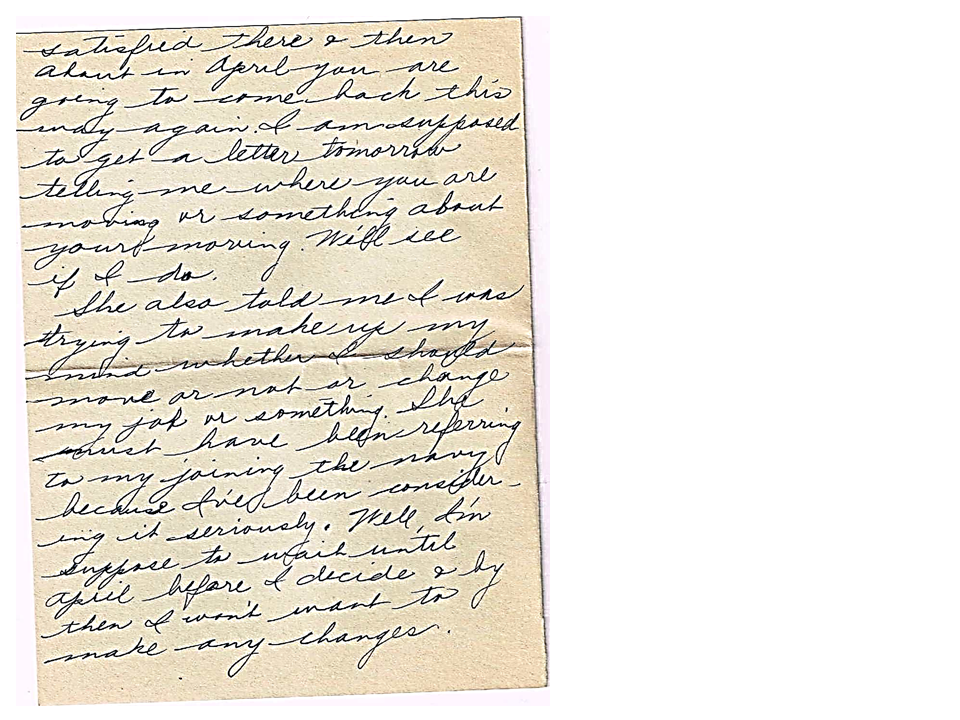 satisfied there & then
about in April you are
going to come back this
way again. I am supposed
to get a letter tomorrow
telling me where you are
moving or something about
your moving. We'll see
if I do.
She also told me I was
trying to make up my
mind whether I should
move or not or change
my job or something. She
must have been referring
to my joining the navy
because I've been consider-
ing it seriously. Well, I'm
suppose to wait until
April before I decide & by
then I won't want to
make any changes.